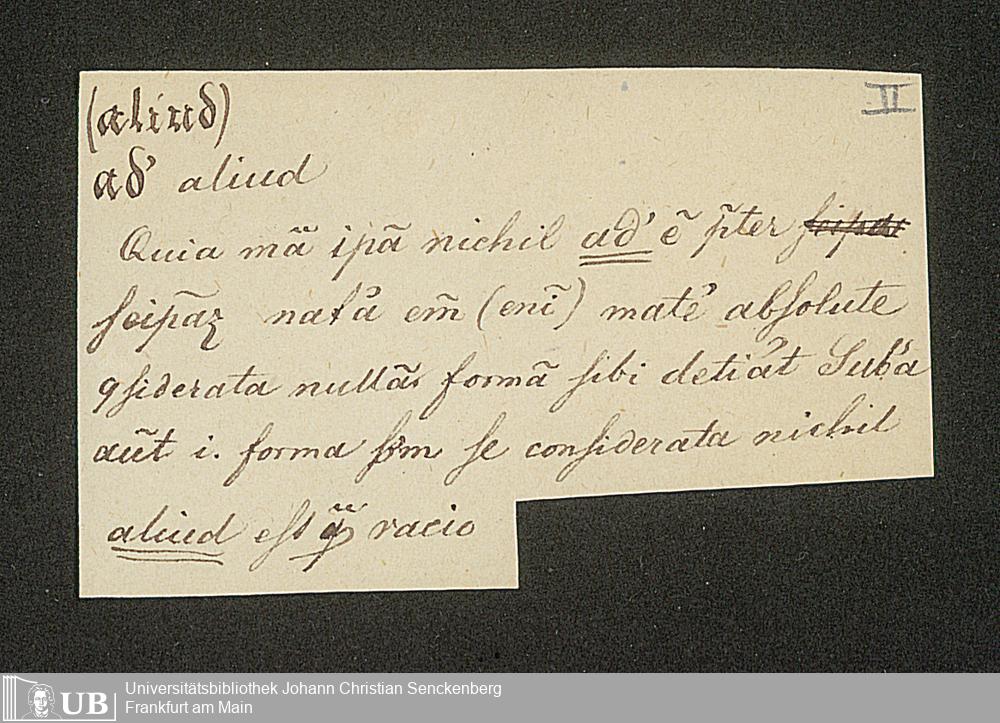 (aliud)
II
ad' aliud
Quia mā ipā nichil ad' ē p̄ter
seipaꝫ natā em̄ (enī) mate' absolute
ꝯsiderata nullās formā sibi detiat
aūt i. forma se considerata nichil
aliud est racio
UB
Universitätsbibliothek Johann Christian Senckenberg
Frankfurt am Main